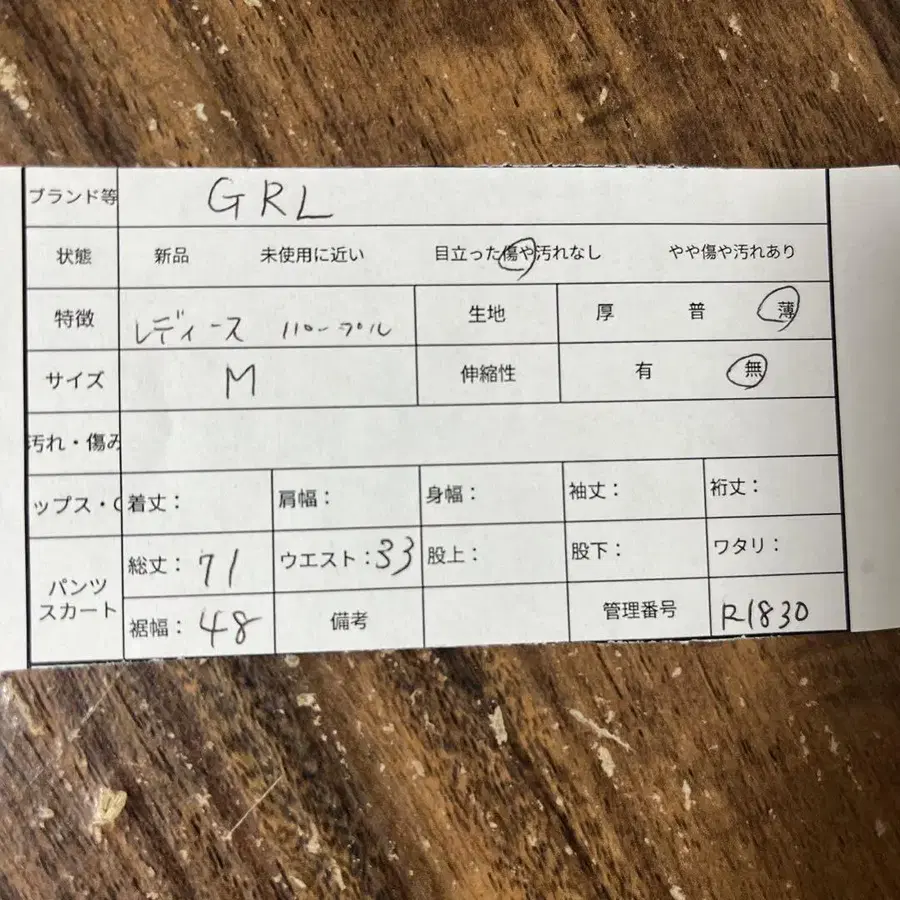 ブランド等 GRL
状態 新品 未使用に近い 目立った傷や汚れなし やや傷や汚れあり
特徴 レディース パープル 生地 厚 普 薄
サイズ M 伸縮性 有 無
汚れ・傷み
ップス・ 着丈： 肩幅： 身幅： 袖丈： 裄丈：
パンツ スカート 総丈：71 ウエスト：33 股上： 股下： ワタリ：
裾幅：48 備考 管理番号 R1830